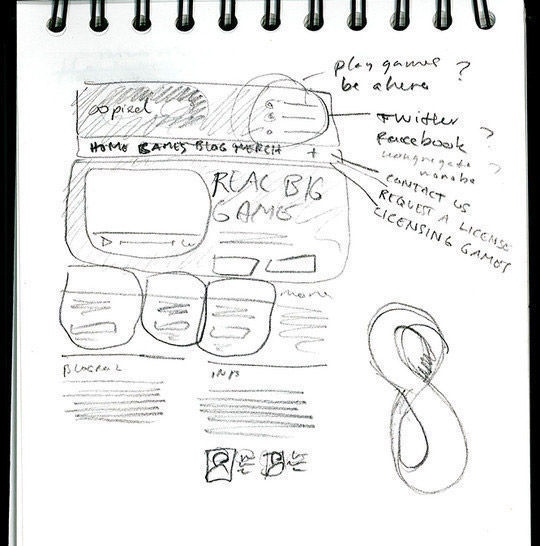 play games ?
be a hero
∞pixel
twitter
facebook ?
HOME GAMES BLOG MERCH +
CONTACT US
REQUEST A LICENSE
LICENSING GAMES
REAL BIG
GAME
more
INFO